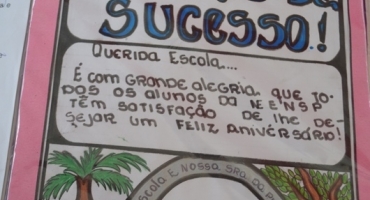 SUCESSO!
QUERIDA ESCOLA....
É COM GRANDE ALEGRIA, QUE TO-
DOS OS ALUNOS DA E.E.N.S.P
TÊM SATISFAÇÃO DE LHE DE-
SEJAR UM FELIZ ANIVERSÁRIO!
ESCOLA E. NOSSA SRA. DA